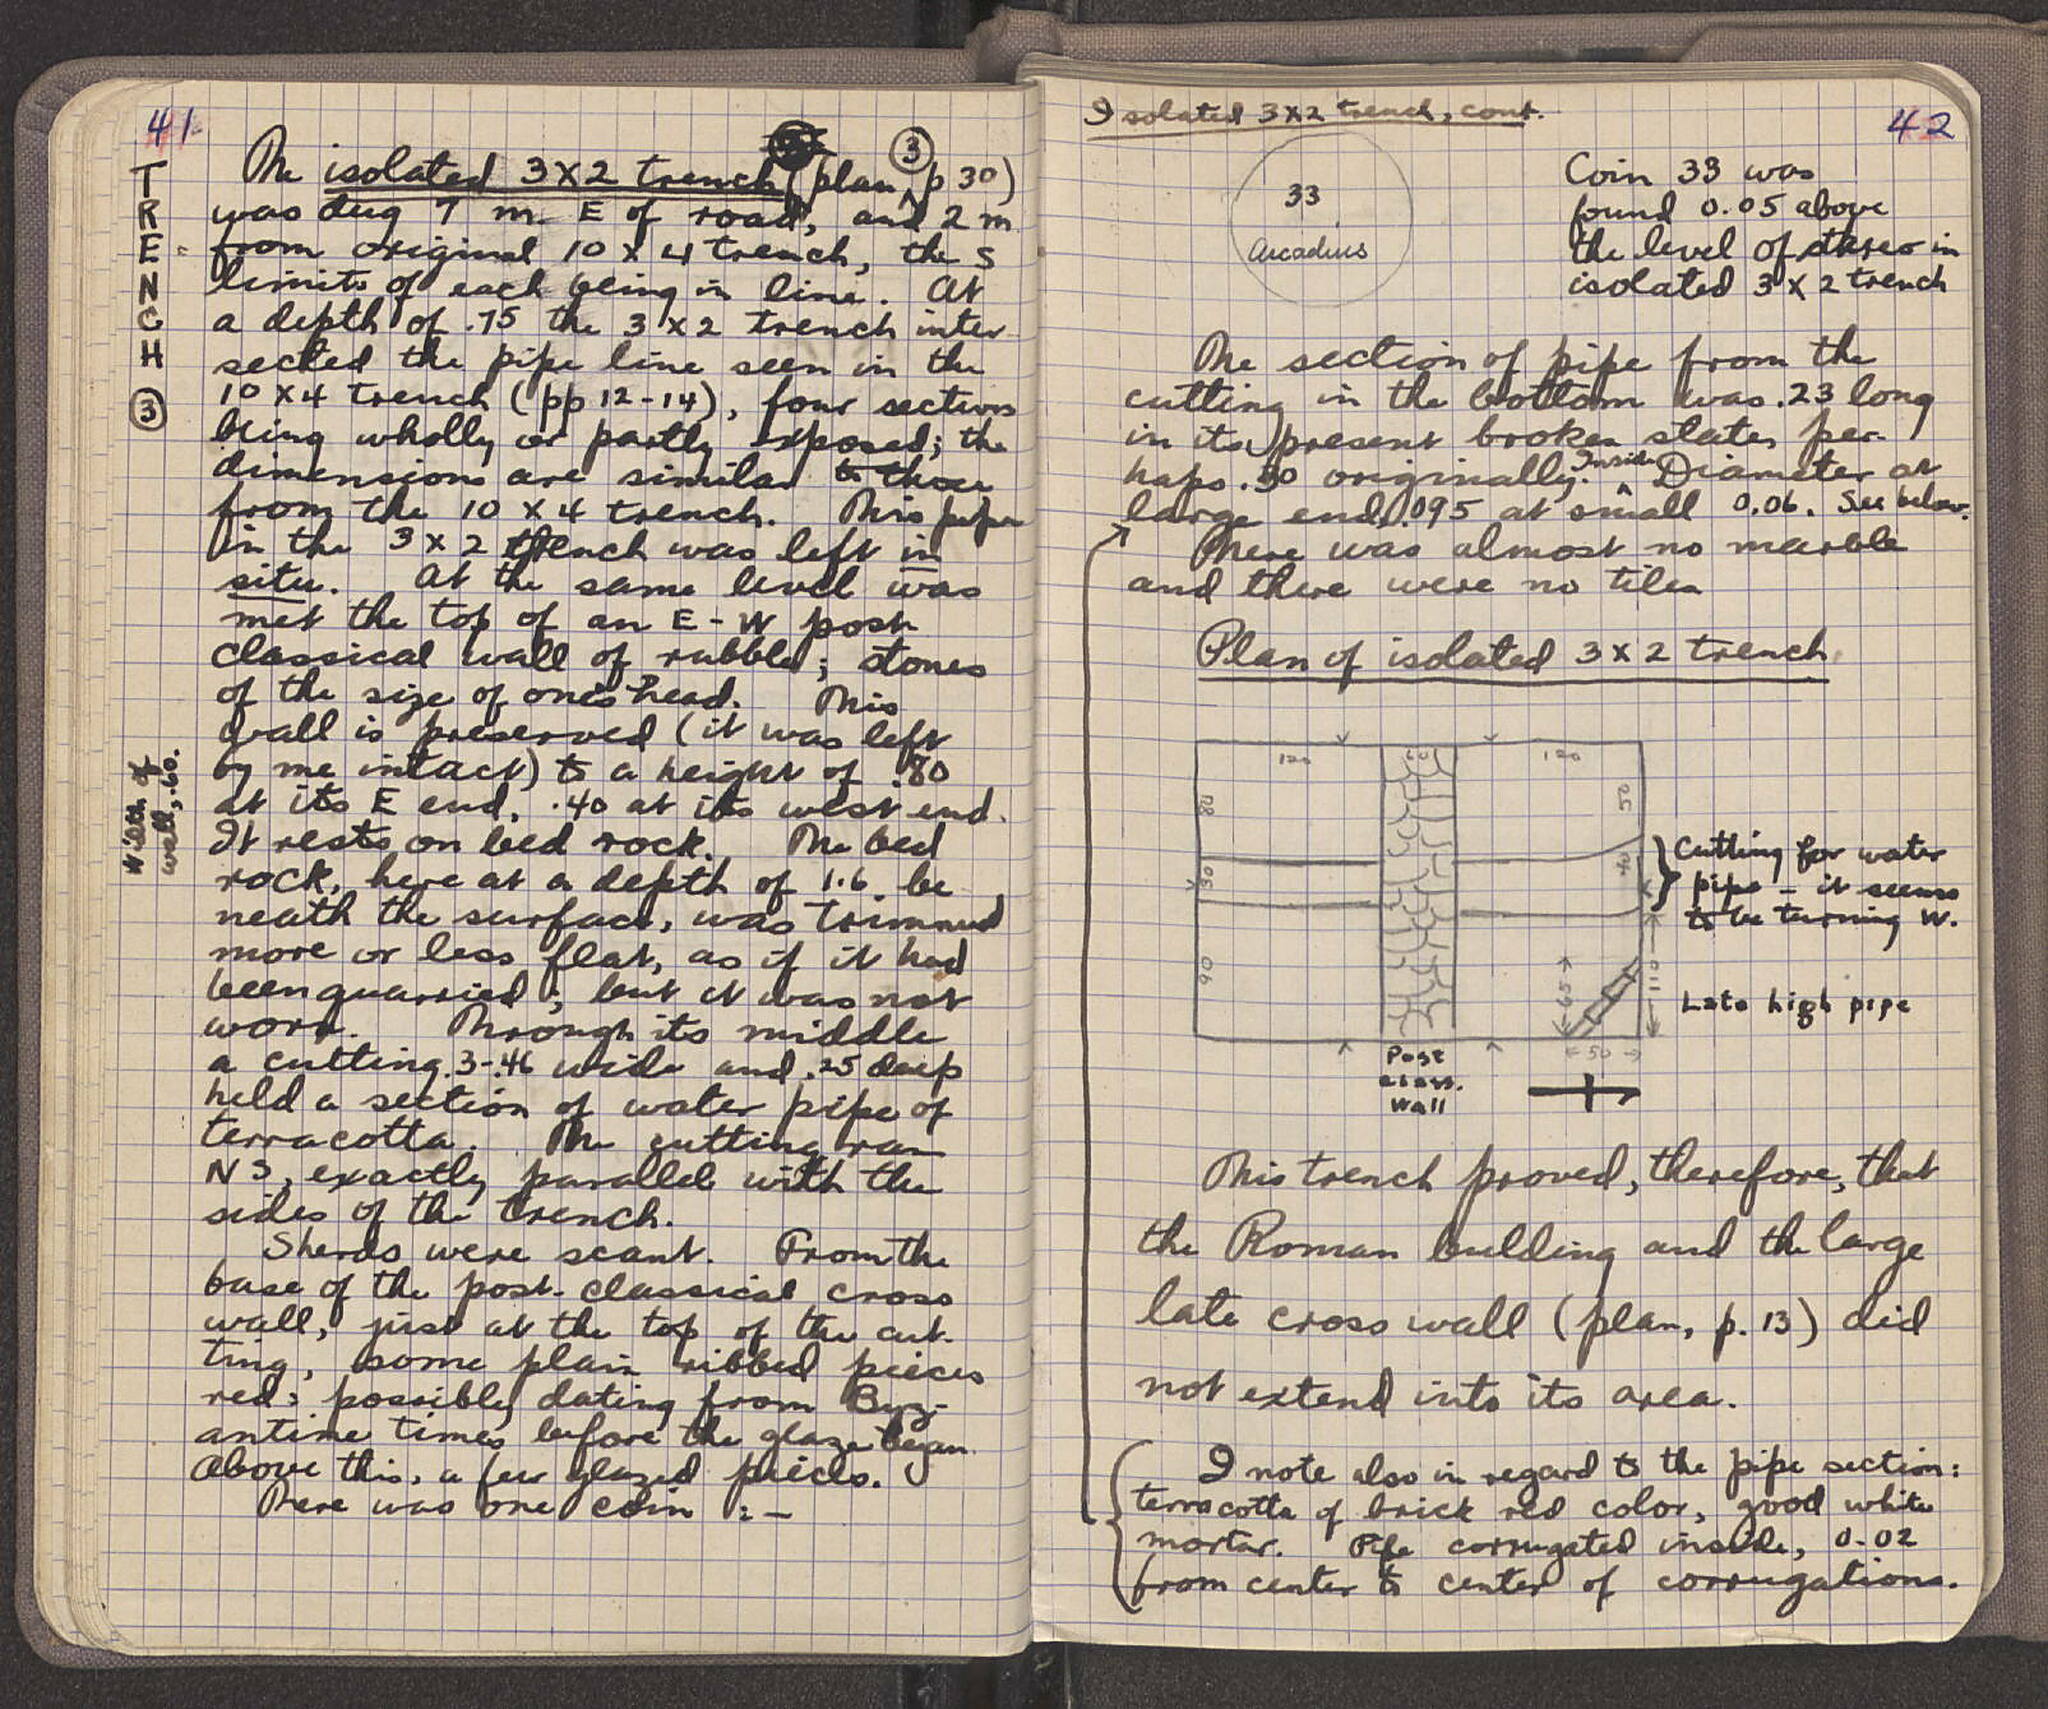 41
TRENCH 3
The isolated 3 x 2 trench (plan 3, p 30)
was dug 7 m. E of road, and 2 m
from original 10 x 4 trench, the S
limits of each being in line. At
a depth of .75 the 3 x 2 trench inter-
sected the pipe line seen in the
10 x 4 trench (pp 12-14), four sections
being wholly or partly exposed; the
dimensions are similar to those
from the 10 x 4 trench. This pipe
in the 3 x 2 trench was left in
situ. At the same level was
met the top of an E-W post
classical wall of rubble; stones
of the size of one's head. This
wall is preserved (it was left
by me intact) to a height of .80
at its E end, .40 at its west end.
Width of
wall, .60.
It rests on bed rock. The bed
rock, here at a depth of 1.6 be
neath the surface, was trimmed
more or less flat, as if it had
been quarried; but it was not
worn. Through its middle
a cutting .3-.46 wide and .25 deep
held a section of water pipe of
terracotta. The cutting ran
NS, exactly parallel with the
sides of the trench.
Sherds were scant. From the
base of the post-classical cross
wall, just at the top of the cut-
ting, some plain ribbed pieces
red; possibly dating from Byz-
antine times before the glaze began.
Above this, a few glazed pieces.
There was one coin :-
Isolated 3x2 trench, cont.
42
33
Arcadius
Coin 33 was
found 0.05 above
the level of stereo in
isolated 3 x 2 trench
The section of pipe from the
cutting in the bottom was .23 long
in its present broken state, per-
haps .30 originally. Inside Diameter at
large end .095 at small 0.06. See below.
There was almost no marble
and there were no tiles
Plan of isolated 3 x 2 trench
120
60
120
80
50
30
40
90
110
65
50
Cutting for water
pipe - it seems
to be turning W.
Late high pipe
Post
class.
Wall
This trench proved, therefore, that
the Roman building and the large
late cross wall (plan, p. 13) did
not extend into its area.
I note also in regard to the pipe section:
terracotta of brick red color, good white
mortar. Pipe corrugated inside, 0.02
from center to center of corrugations.